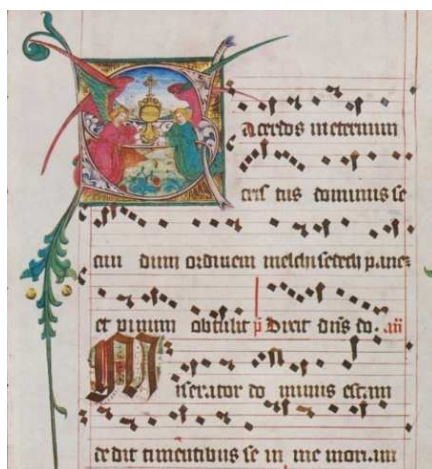 Sacerdos in eternum
cris tus dominus se
cun dum ordinem melchisedech pane
et vinum obtulit p Dixit dns do. an
Miserator do minus escam
dedit timentibus se in me moriam